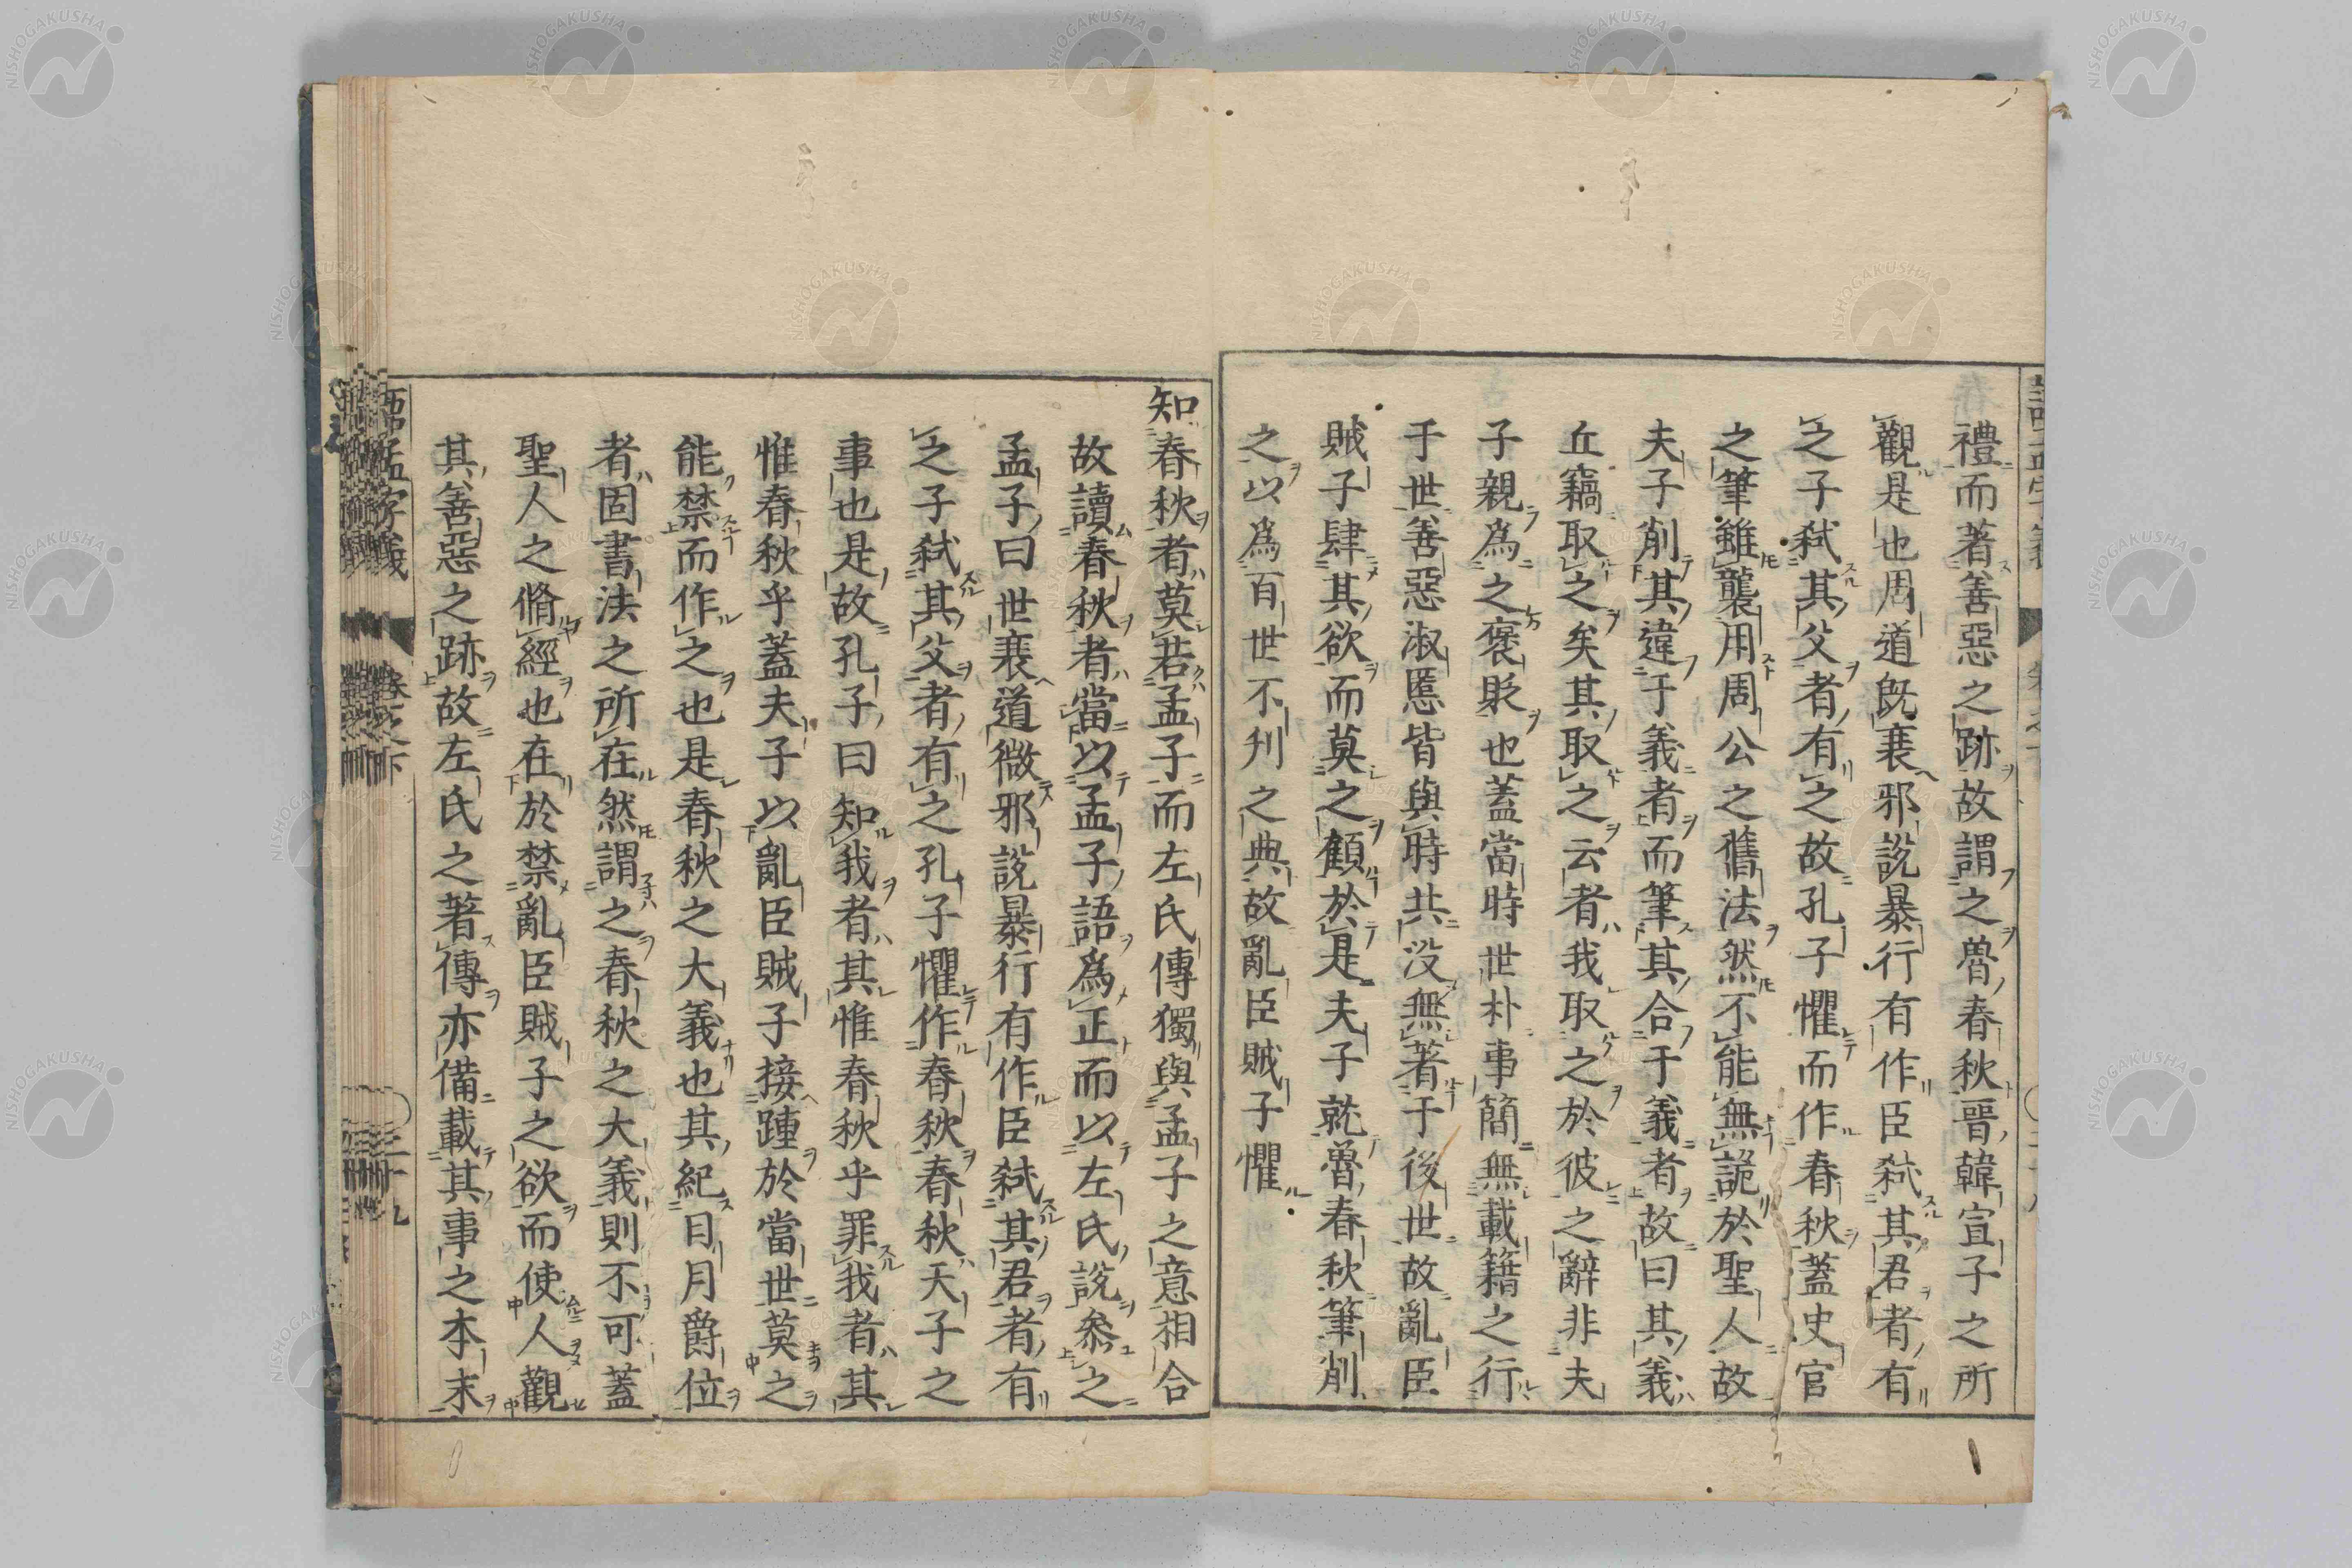 禮而著善惡之跡故謂之魯春秋晉韓宣子之所
觀是也周道既衰邪說暴行有作臣弒其君者有
之子弒其父者有之故孔子懼而作春秋蓋史官
之筆雖襲用周公之舊法然不能無詭於聖人故
夫子削其違于義者而筆其合于義者故曰其義
丘竊取之矣其取之云者我取之於彼之辭非夫
子親爲之褒貶也蓋當時世朴事簡無載籍之行
于世善惡淑慝皆與時共没無著于後世故亂臣
賊子肆其欲而莫之顧於是夫子就魯春秋筆削
之以爲百世不刋之典故亂臣賊子懼
知春秋者莫若孟子而左氏傳獨與孟子之意相合
故讀春秋者當以孟子語爲正而以左氏說參之
孟子曰世衰道微邪說暴行有作臣弒其君者有
之子弒其父者有之孔子懼作春秋春秋天子之
事也是故孔子曰知我者其惟春秋乎罪我者其
惟春秋乎蓋夫子以亂臣賊子接踵於當世莫之
能禁而作之也是春秋之大義也其紀日月爵位
者固書法之所在然謂之春秋之大義則不可蓋
聖人之脩經也在於禁亂臣賊子之欲而使人觀
其善惡之跡故左氏之著傳亦備載其事之本末
語孟字義 卷之下 三十九
NISHOGAKUSHA